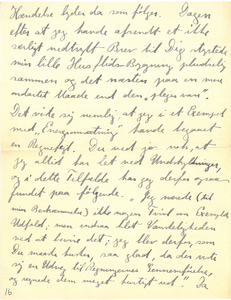 Hændelse lyder da som følger. Dagen
efter at jeg havde afsendt et ikke
særligt nedtrykt Brev til Dig styrtede
min lille Hus Bygning pludselig
sammen og det næsten paa en mere
måde end den "plejer van".
Det viste sig nemlig at jeg i et Exempel
med havde begaaet
en Regnefejl. Du ved jo nok, at
jeg altid har let ved Undskyldninger,
og i dette Tilfælde har jeg derfor ogsaa
fundet paa følgende. "Jeg havde (til
min Beskæmmelse) ikke nogen Tvivl om Exemplets
Udfald; men endnu blot Vanskeligheden
ved at bevise det; jeg blev derfor, som
Du maaske husker, saa glad, da der viste
sig en Udvej til Regningernes Gennemførelse,
og regnede dem meget hurtigt ud". Da
16